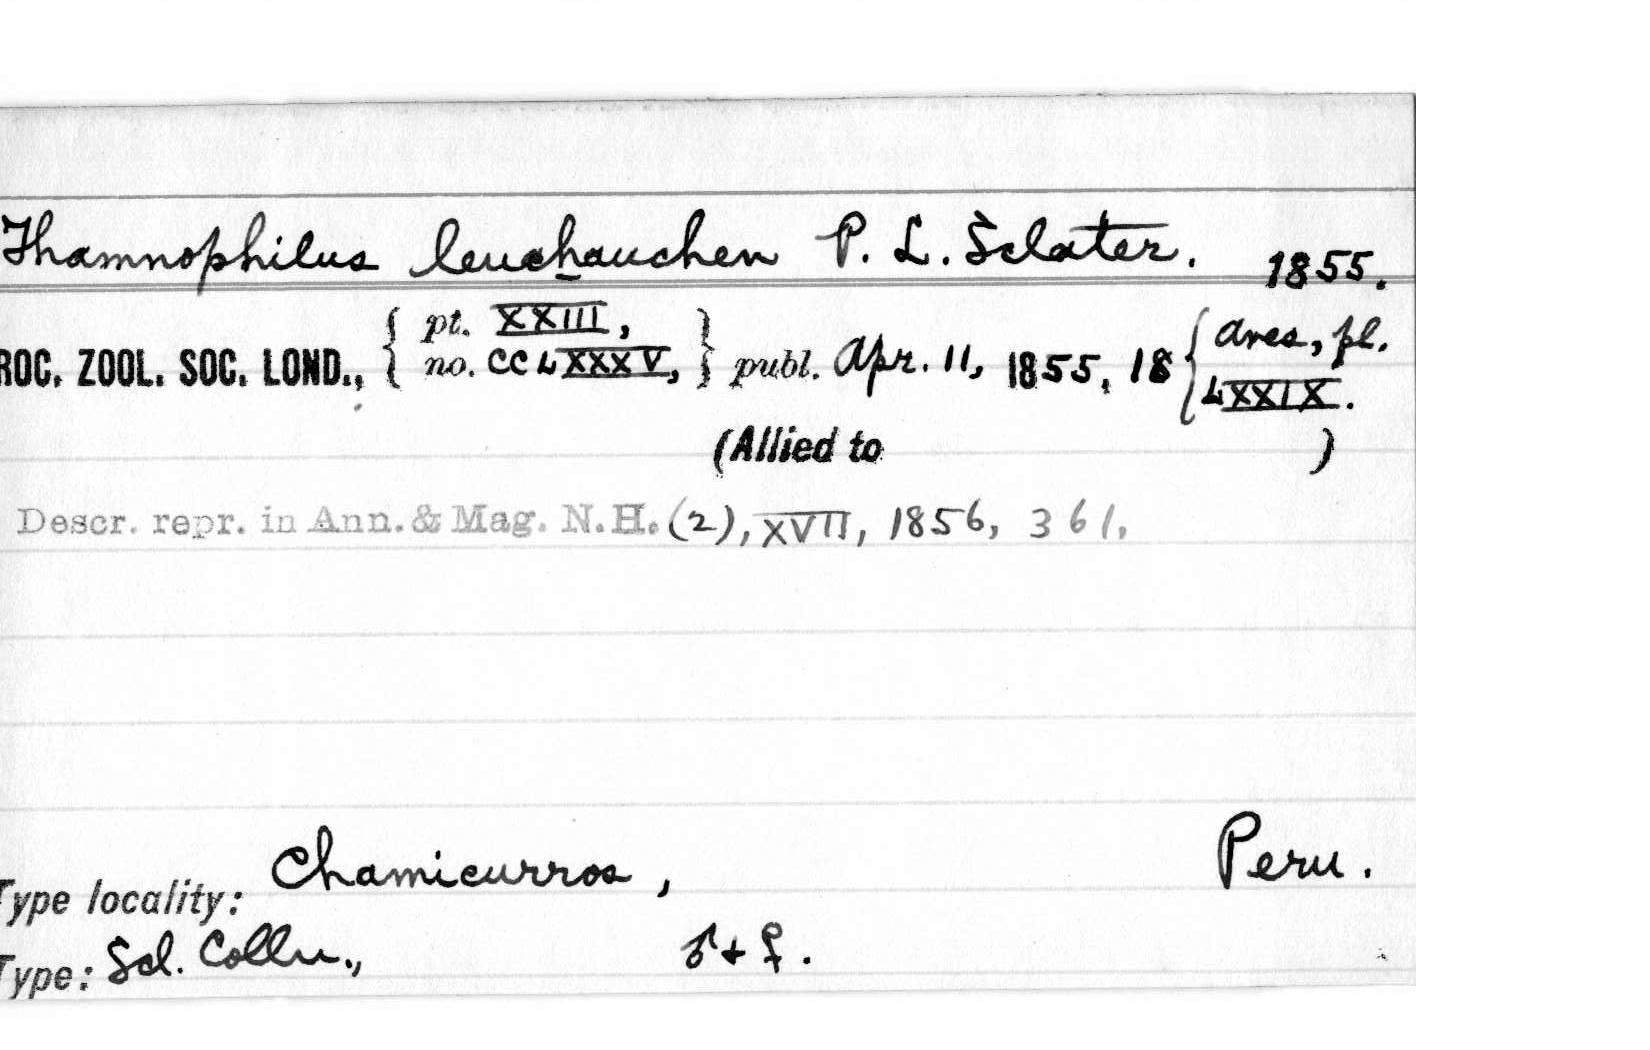 Thamnophilus leuchauchen P. L. Sclater. 1855.
ROC. ZOOL. SOC. LOND., { pt. XXIII, no. CCLXXXV, } publ. Apr. 11, 1855, 18 { Aves, pl. LXXIX.
(Allied to )
Descr. repr. in Ann. & Mag. N.H. (2), XVII, 1856, 361.
Type locality: Chamicurros, Peru.
Type: Scl. Colln., ♂ + ♀.